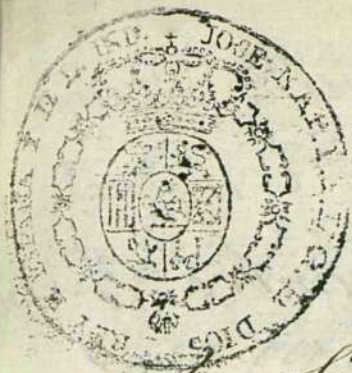 JOSE NAP. I. G. D. DIOS REY ESPAÑA Y D L IND.